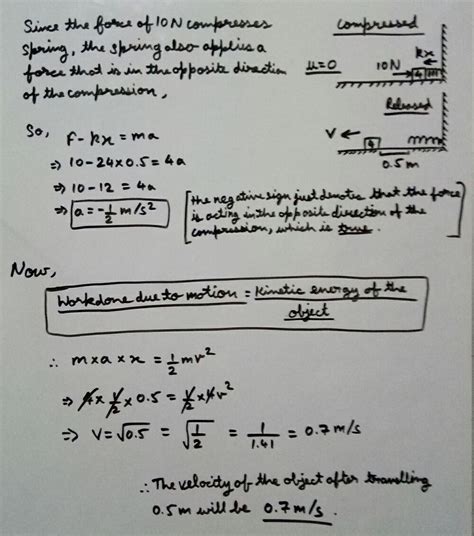 Since the force of 10N compresses
spring, the spring also applies a
force that is in the opposite direction
of the compression,
compressed
kx
μ=0
10N
4
m
Released
V
4
0.5m
So,
F - kx = ma
⇒ 10-24×0.5 = 4a
⇒ 10-12 = 4a
⇒ a = -1/2 m/s²
[the negative sign just denotes that the force
is acting in the opposite direction of the
compression, which is true.]
Now,
Workdone due to motion = Kinetic energy of the
object
∴ m×a×x = 1/2 mv²
⇒ 4× 1/2 ×0.5 = 1/2 ×4v²
⇒ V = √0.5 = √1/2 = 1/1.41 = 0.7 m/s
∴ The velocity of the object after travelling
0.5m will be 0.7 m/s.